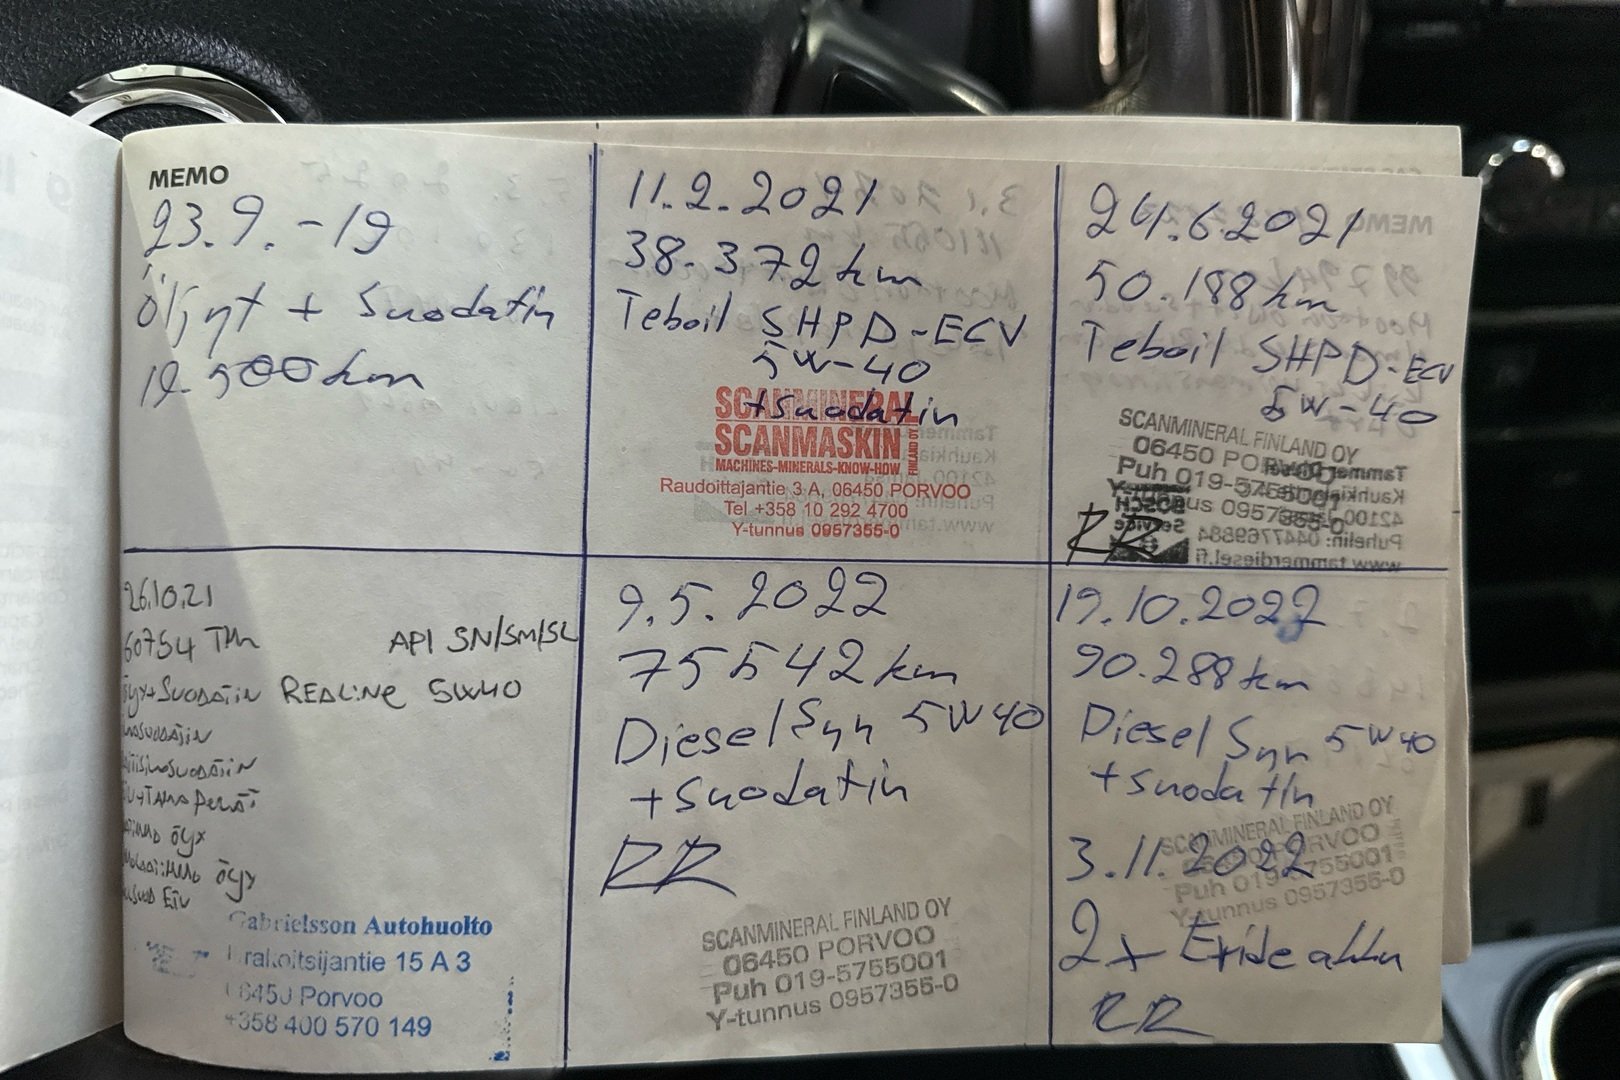 MEMO
23.9.-19
Öljyt + Suodatin
19.500 km
11.2.2021
38.372 km
Teboil SHPD-ECV
5W-40
+ suodatin
SCANMINERAL
SCANMASKIN
FINLAND OY
MACHINES-MINERALS-KNOW-HOW
Raudoittajantie 3 A, 06450 PORVOO
Tel +358 10 292 4700
Y-tunnus 0957355-0
24.6.2021
50.188 km
Teboil SHPD-ECV
5W-40
SCANMINERAL FINLAND OY
06450 PORVOO
Puh 019-5755001
Y-tunnus 0957355-0
RR
26.10.21
60754 TKM
API SN/SM/SL
REDLINE 5W40
Gabrielsson Autohuolto
15 A 3
06450 Porvoo
+358 400 570 149
9.5.2022
75542 km
Diesel Syn 5W40
+ suodatin
RR
SCANMINERAL FINLAND OY
06450 PORVOO
Puh 019-5755001
Y-tunnus 0957355-0
19.10.2022
90.288 km
Diesel Syn 5W40
+ suodatin
SCANMINERAL FINLAND OY
06450 PORVOO
Puh 019-5755001
Y-tunnus 0957355-0
3.11.2022
2x Exide akku
RR